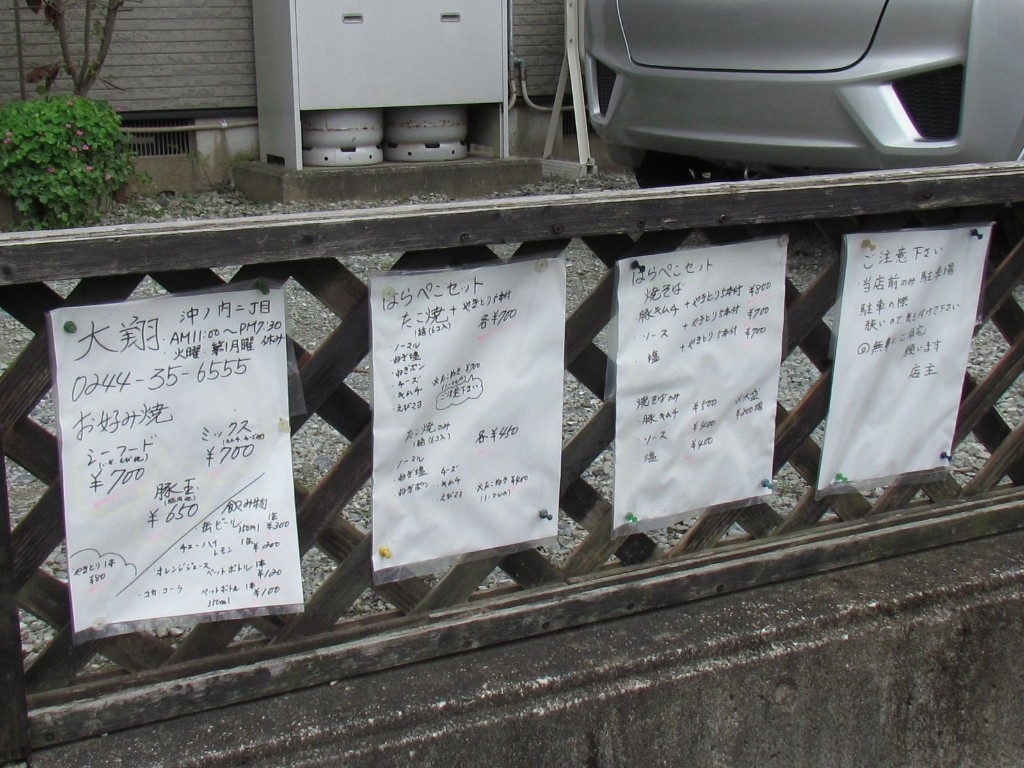 沖ノ内二丁目
大翔 AM11:00〜PM7:30
火曜 第1月曜 休み
0244-35-6555
お好み焼
シーフード
¥700
ミックス
¥700
豚玉
¥650
飲み物
缶ビール 1缶
350ml ¥300
チューハイ 1缶
レモン ¥200
オレンジジュース
ペットボトル 1本
¥120
・コカ・コーラ ペットボトル 1本
350ml ¥100
やきとり1本
¥80
はらぺこセット
たこ焼 + やきとり5本付
1箱(6コ入) 各¥700
・ノーマル
・ねぎ塩
・ねぎポン
・チーズ
・キムチ
・えびマヨ
ご注意下さい
たこ焼のみ
1箱(6コ入) 各¥450
・ノーマル
・ねぎ塩 ・チーズ
・ねぎポン ・キムチ
・えびマヨ
はらぺこセット
焼そば
豚キムチ + やきとり5本付 ¥800
・ソース + やきとり5本付 ¥700
・塩 + やきとり5本付 ¥700
焼そばのみ
豚キムチ ¥500
・ソース ¥400
・塩 ¥400
大盛
¥200増
ご注意下さい
当店前のみ 駐車場
駐車の際
狭いので気を付けて下さい
店主